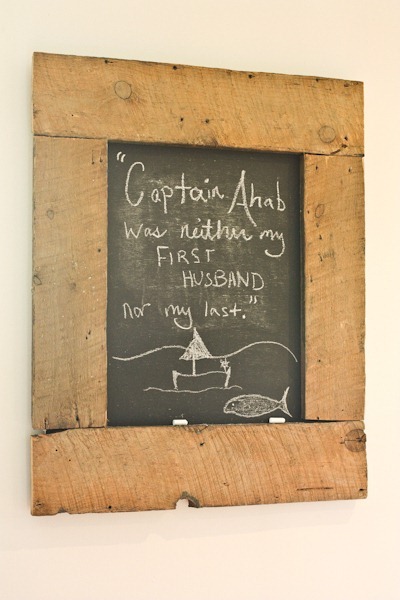 "Captain Ahab
was neither my
FIRST
HUSBAND
nor my last."